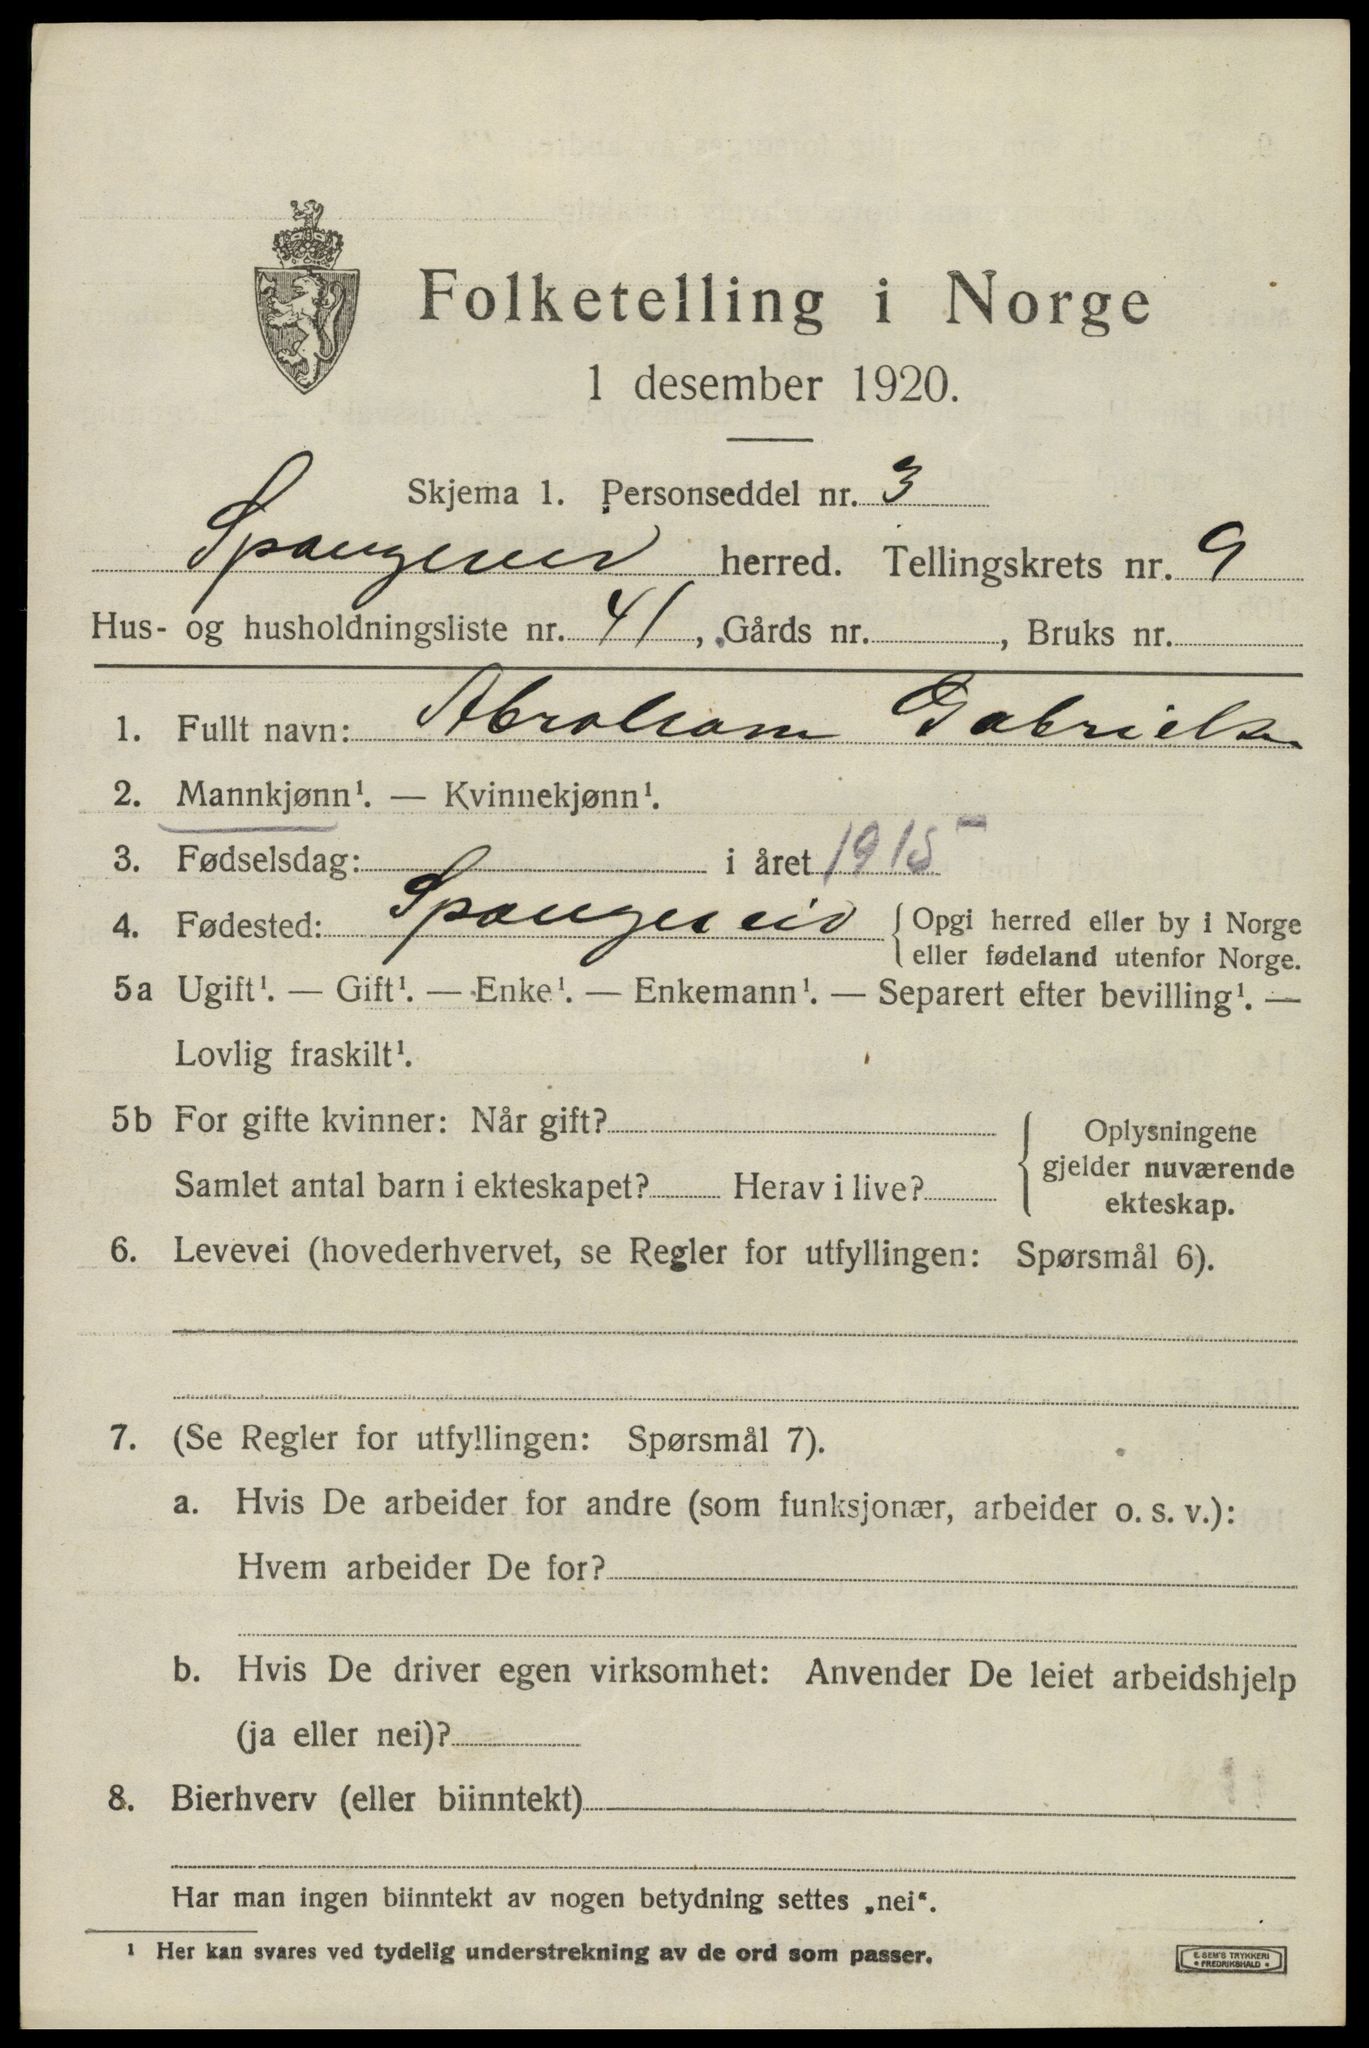 Folketelling i Norge
1 desember 1920.
Skjema 1. Personseddel nr. 3
Spangereid herred. Tellingskrets nr. 9
Hus- og husholdningsliste nr. 41, Gårds nr. , Bruks nr.
1. Fullt navn: Abraham Gabrielsen
2. Mannkjønn¹. — Kvinnekjønn¹.
3. Fødselsdag: i året 1915
4. Fødested: Spangereid { Opgi herred eller by i Norge
eller fødeland utenfor Norge.
5a Ugift¹. — Gift¹. — Enke¹. — Enkemann¹. — Separert efter bevilling¹. —
Lovlig fraskilt¹.
5b For gifte kvinner: Når gift?
Samlet antal barn i ekteskapet? Herav i live?
{ Oplysningene
gjelder nuværende
ekteskap.
6. Levevei (hovederhvervet, se Regler for utfyllingen: Spørsmål 6).
7. (Se Regler for utfyllingen: Spørsmål 7).
a. Hvis De arbeider for andre (som funksjonær, arbeider o. s. v.):
Hvem arbeider De for?
b. Hvis De driver egen virksomhet: Anvender De leiet arbeidshjelp
(ja eller nei)?
8. Bierhverv (eller biinntekt)
Har man ingen biinntekt av nogen betydning settes „nei“.
¹ Her kan svares ved tydelig understrekning av de ord som passer.
E. SEM'S TRYKKERI
• FREDRIKSHALD •